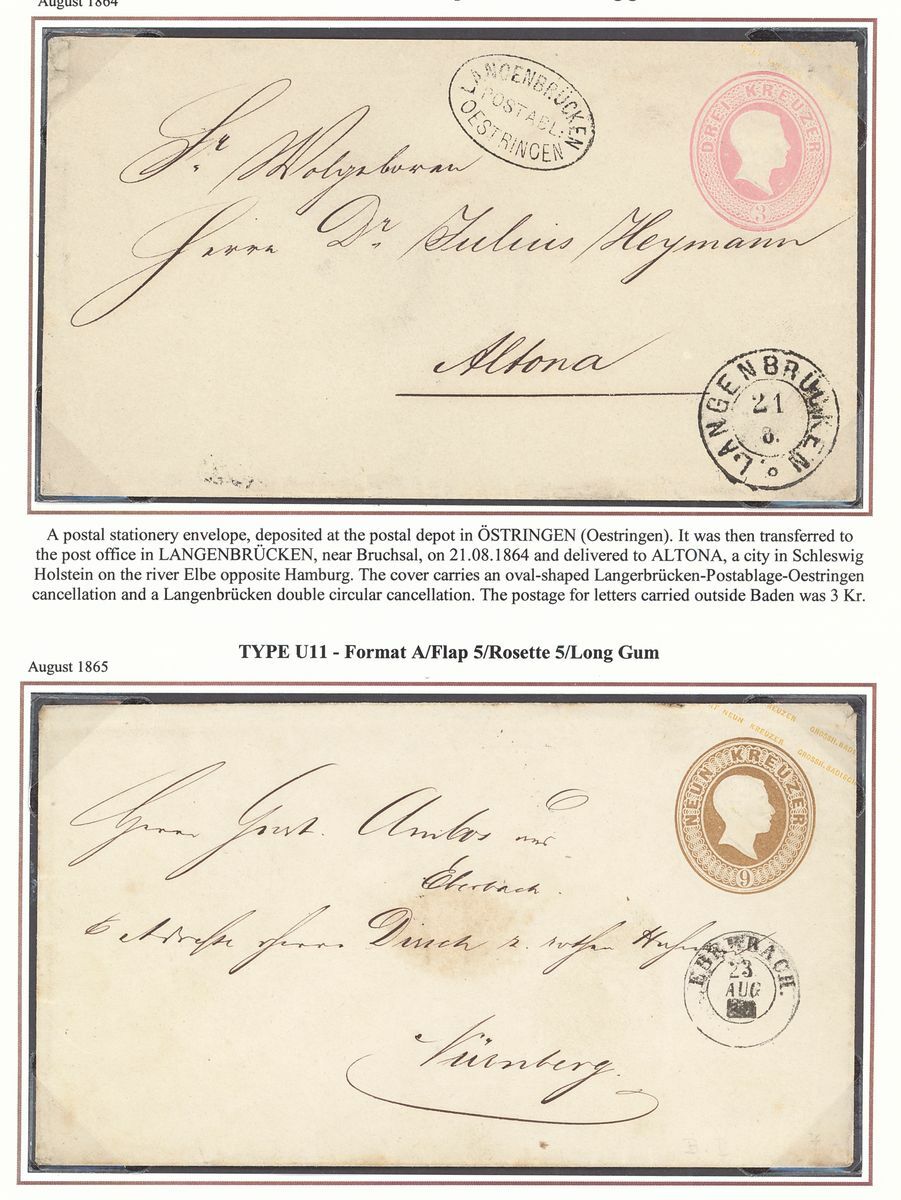 August 1864
LANGENBRÜCKEN
POSTABL.
OESTRINGEN
DREI KREUZER
3
Sr Wolgeboren
Herrn Dr Julius Heymann
Altona
LANGENBRÜCKEN
21
8.
A postal stationery envelope, deposited at the postal depot in ÖSTRINGEN (Oestringen). It was then transferred to
the post office in LANGENBRÜCKEN, near Bruchsal, on 21.08.1864 and delivered to ALTONA, a city in Schleswig
Holstein on the river Elbe opposite Hamburg. The cover carries an oval-shaped Langerbrücken-Postablage-Oestringen
cancellation and a Langenbrücken double circular cancellation. The postage for letters carried outside Baden was 3 Kr.
TYPE U11 - Format A/Flap 5/Rosette 5/Long Gum
August 1865
NEUN KREUZER
GROSSH. BADISCH
NEUN KREUZER
9
Herrn Ambos aus
Eberbach.
Adresse Herrn z. rothen
EBERBACH.
23
AUG
Nürnberg.